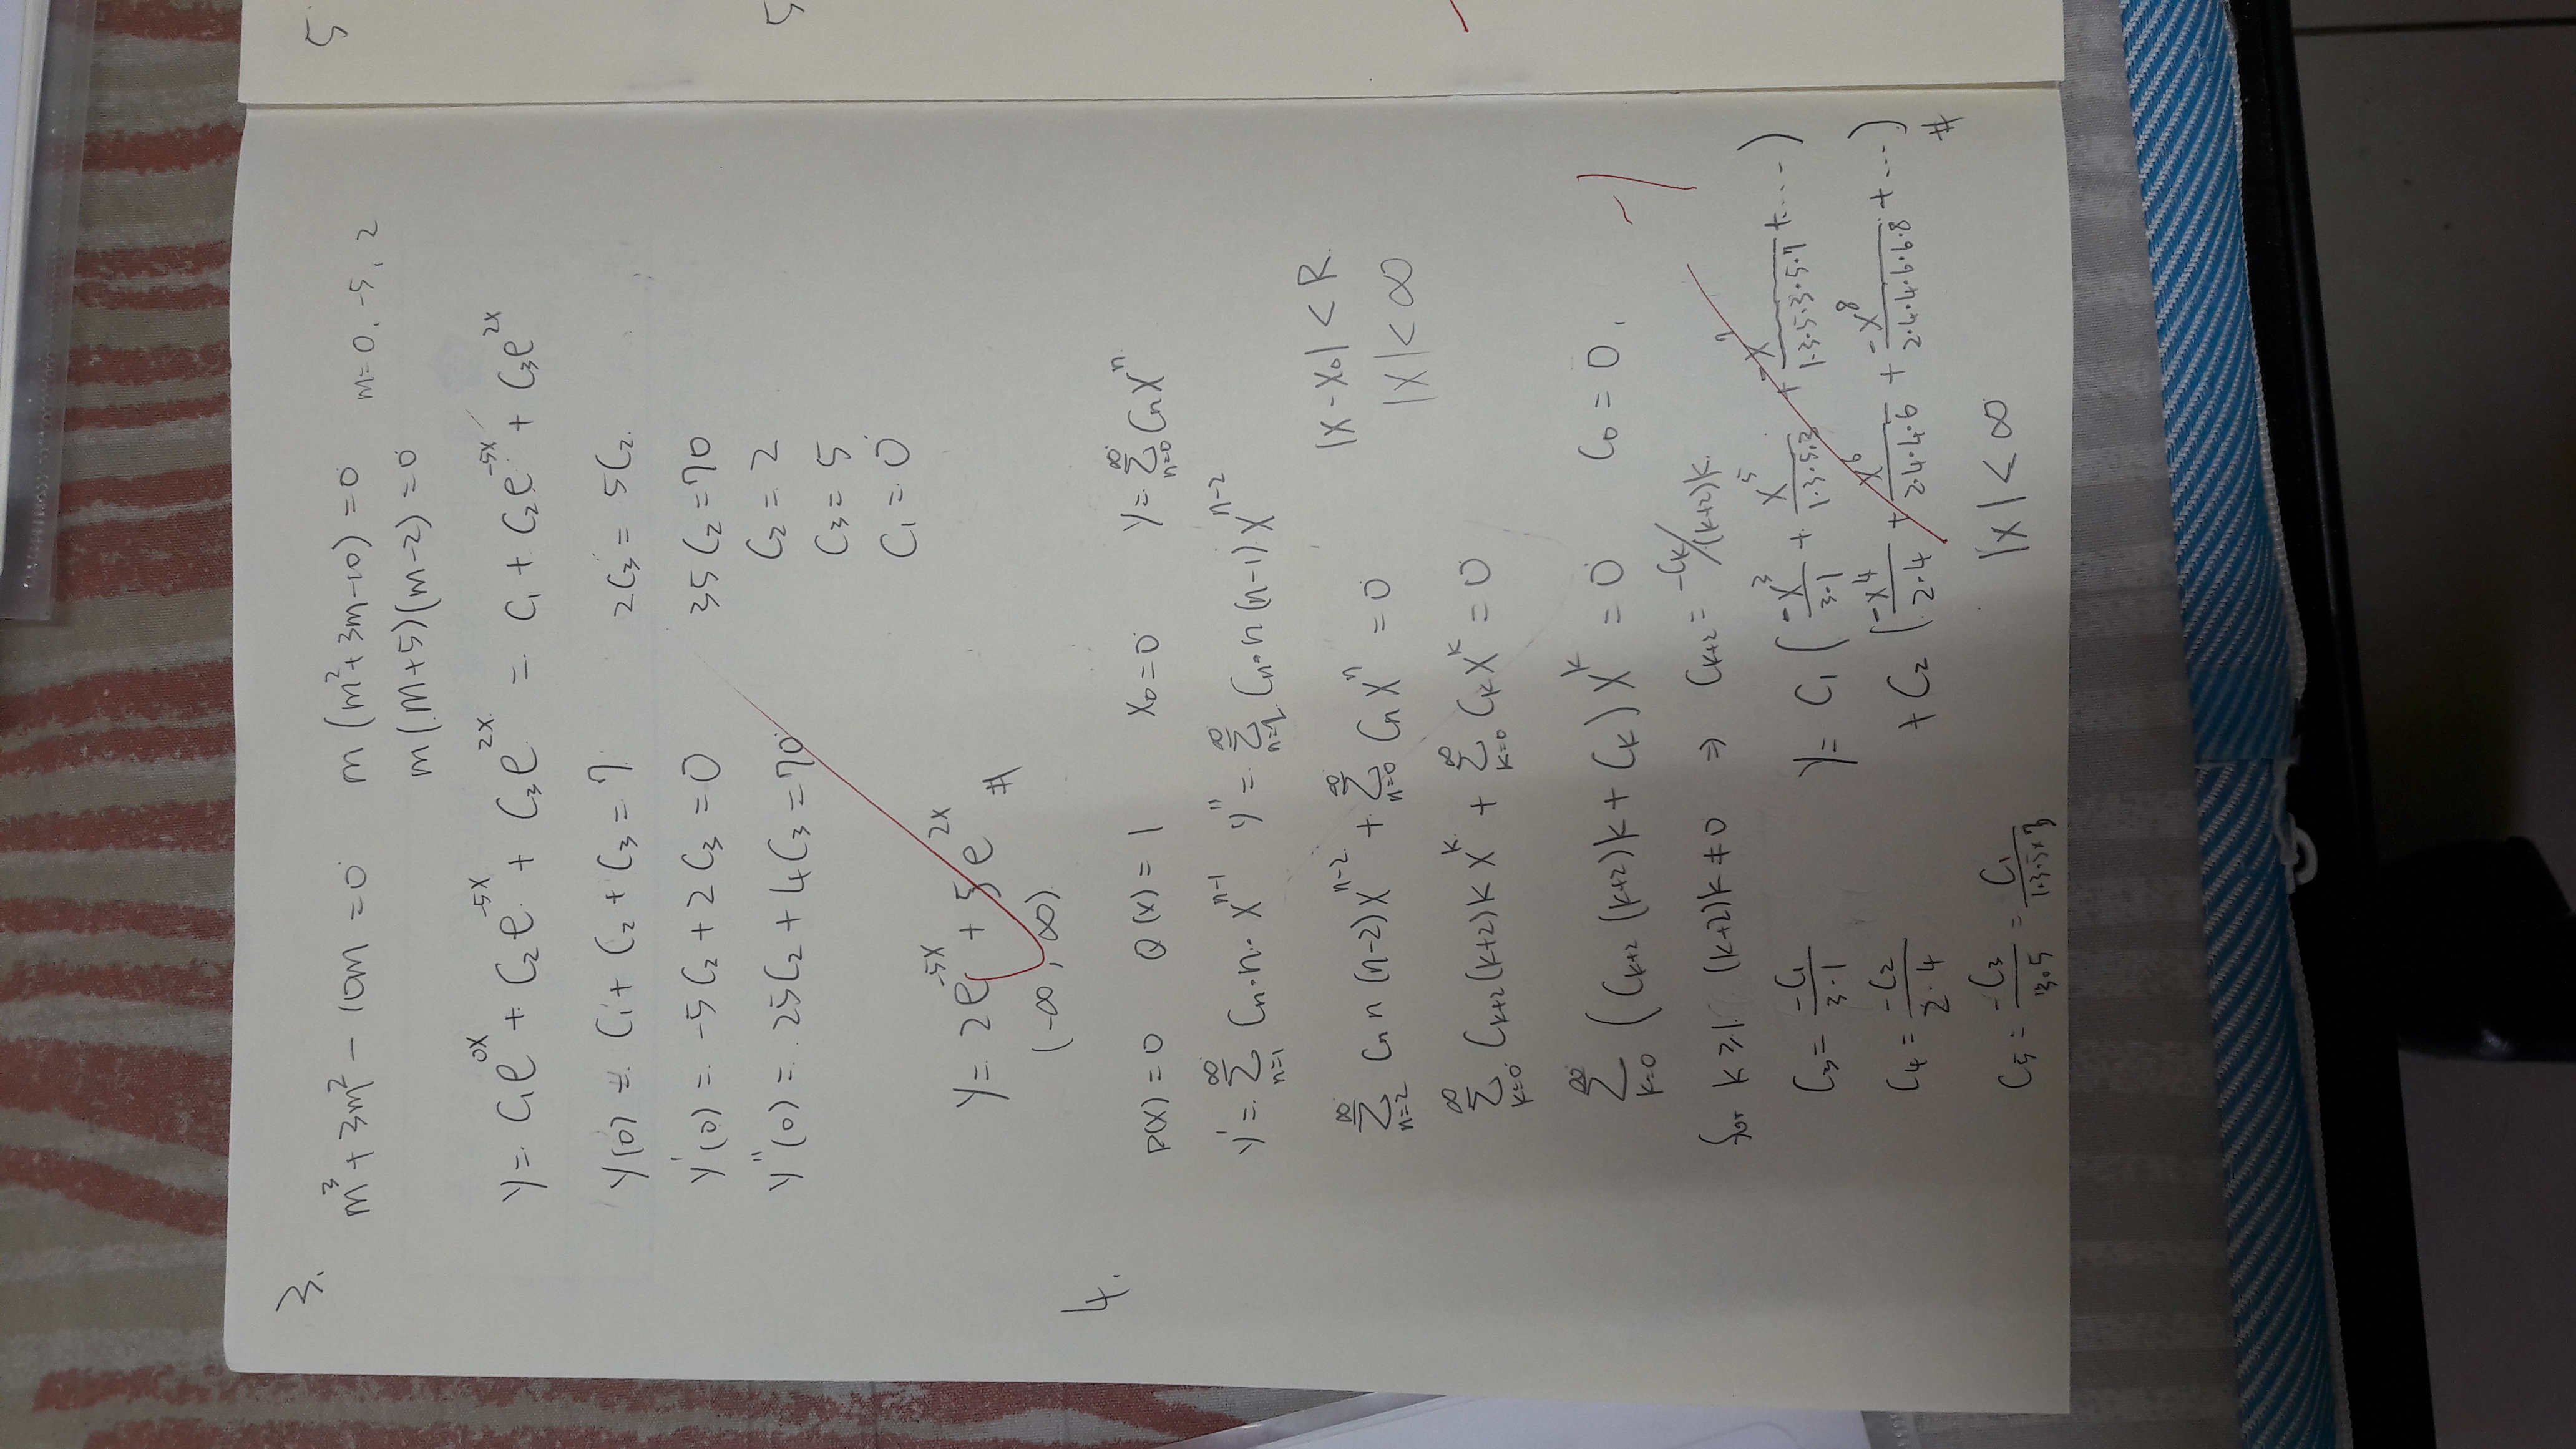 3.
m³ + 3m² - 10m = 0   m(m²+3m-10) = 0   m = 0, -5, 2
m(m+5)(m-2) = 0
y = C₁e^{0x} + C₂e^{-5x} + C₃e^{2x} = C₁ + C₂e^{-5x} + C₃e^{2x}
y(0) = C₁ + C₂ + C₃ = 7   2C₃ = 5C₂
y'(0) = -5C₂ + 2C₃ = 0   35C₂ = 70
y''(0) = 25C₂ + 4C₃ = 70   C₂ = 2
C₃ = 5
C₁ = 0
y = 2e^{-5x} + 5e^{2x} #
(-∞, ∞)
4.
P(x) = 0   Q(x) = 1   x₀ = 0   y = Σ_{n=0}^{∞} Cₙxⁿ
y' = Σ_{n=1}^{∞} Cₙ·n·x^{n-1}   y'' = Σ_{n=2}^{∞} Cₙ·n(n-1)x^{n-2}
|x-x₀| < R
Σ_{n=2}^{∞} Cₙn(n-2)x^{n-2} + Σ_{n=0}^{∞} Cₙxⁿ = 0
|x| < ∞
Σ_{k=0}^{∞} C_{k+2}(k+2)k x^k + Σ_{k=0}^{∞} C_k x^k = 0
Σ_{k=0}^{∞} (C_{k+2}(k+2)k + C_k)x^k = 0   C₀ = 0,
-1
for k≥1 (k+2)k ≠ 0 ⇒ C_{k+2} = -C_k/(k+2)k
C₃ = -C₁/(3·1)   y = C₁(-x³/(3·1) + x⁵/(1·3·5·3) + -x⁷/(1·3·5·3·5·7) + ...)
C₄ = -C₂/(2·4)   + C₂(-x⁴/(2·4) + x⁶/(2·4·4·6) + -x⁸/(2·4·4·6·6·8) + ...) #
C₅ = -C₃/(3·5) = C₁/(1·3·5×3)   |x| < ∞
5
5